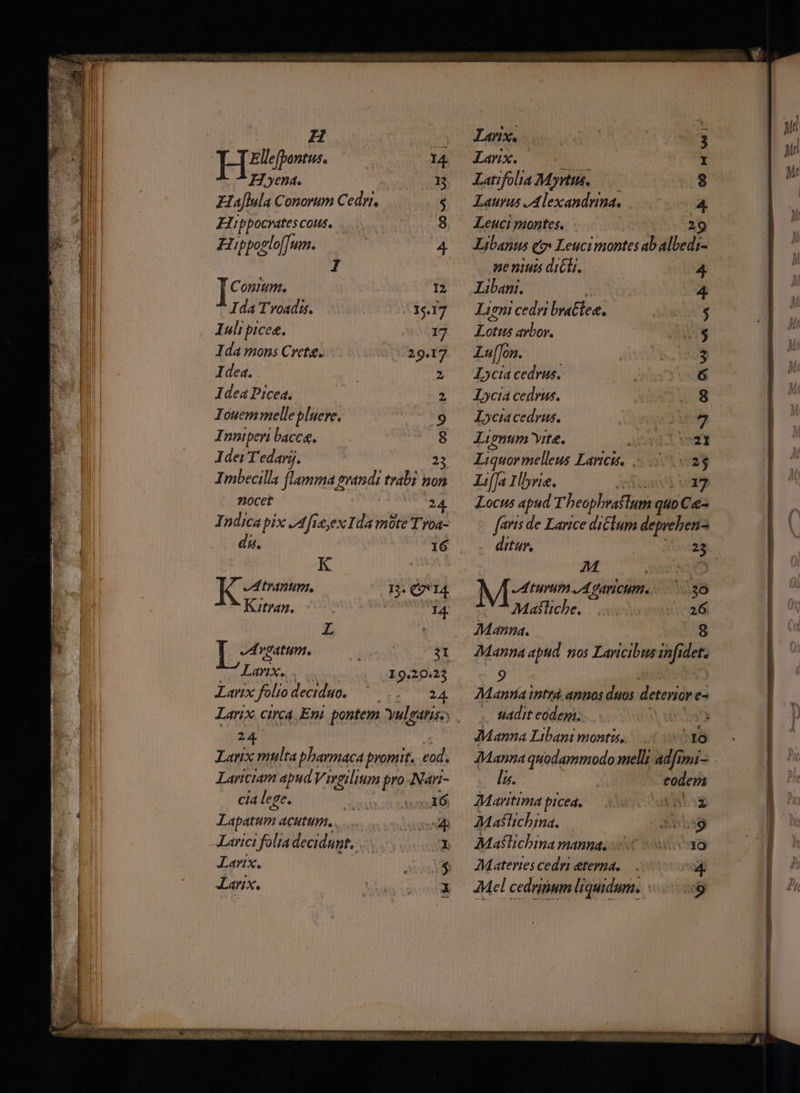 H
HEllespontus. 14
Hyena. 13
Hastula Conorum Cedri. 5
Hippocrates cous. 8
Hippoglossum. 4
I
IConium. 12
Ida Troadis. 15.17
Iuli picee. 17
Ida mons Cretæ. 29.17
Idea. 2
Idea Picea. 2
Iouem melle pluere. 9
Inniperi baccæ. 8
Idei Tedarij. 23
Imbecilla flamma grandi trabi non
nocet 24
Indica pix Asiæ, ex Ida mōte Troa-
dis. 16
K
KAtranum. 13. & 14
Kitran. 14
L
LArgatum. 31
Larix. 19.20.23
Larix folio deciduo. 24
Larix circa Eni pontem vulgatis.
24
Larix multa pharmaca promit. eod.
Lariciam apud Virgilium pro Nari-
cia lege. 16
Lapatum acutum. 4
Larici folia decidunt. 1
Larix. 5
Larix. 1
Larix. 3
Larix. 1
Latifolia Myrtus. 8
Laurus Alexandrina. 4
Leuci montes. 29
Libanus & Leuci montes ab albedi-
ne niuis dicti. 4
Libani. 4
Ligni cedri bracteæ. 5
Lotus arbor. 5
Lusson. 3
Lycia cedrus. 6
Lycia cedrus. 8
Lycia cedrus. 7
Lignum vitæ. 21
Liquor melleus Laricis. 25
Lissa Illyriæ. 17
Locus apud Theophrastum quo Cæ-
saris de Larice dictum deprehen-
ditur. 23
M
MAturum Agaricum. 30
Mastiche. 26
Manna. 8
Manna apud nos Laricibus insidet.
9
Manna intra annos duos deterior e-
uadit eodem.
Manna Libani montis. 10
Manna quodammodo melli adsimi-
lis. eodem
Maritima picea. 2
Mastichina. 9
Mastichina manna. 10
Materies cedri æterna. 4
Mel cedrinum liquidum. 9